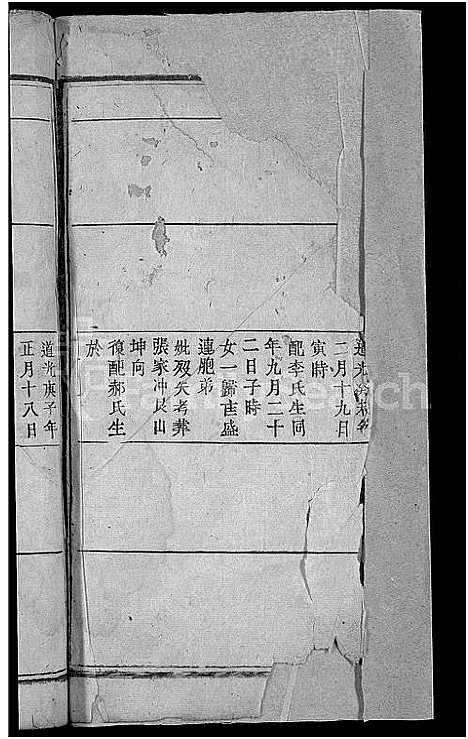 道光
二月十九日
寅時
配李氏生同
年九月二十
二日子時
女一歸吉盛
連胞弟
妣歿矣考葬
張家冲艮山
坤向
復配郝氏生
於
道光庚子年
正月十八日